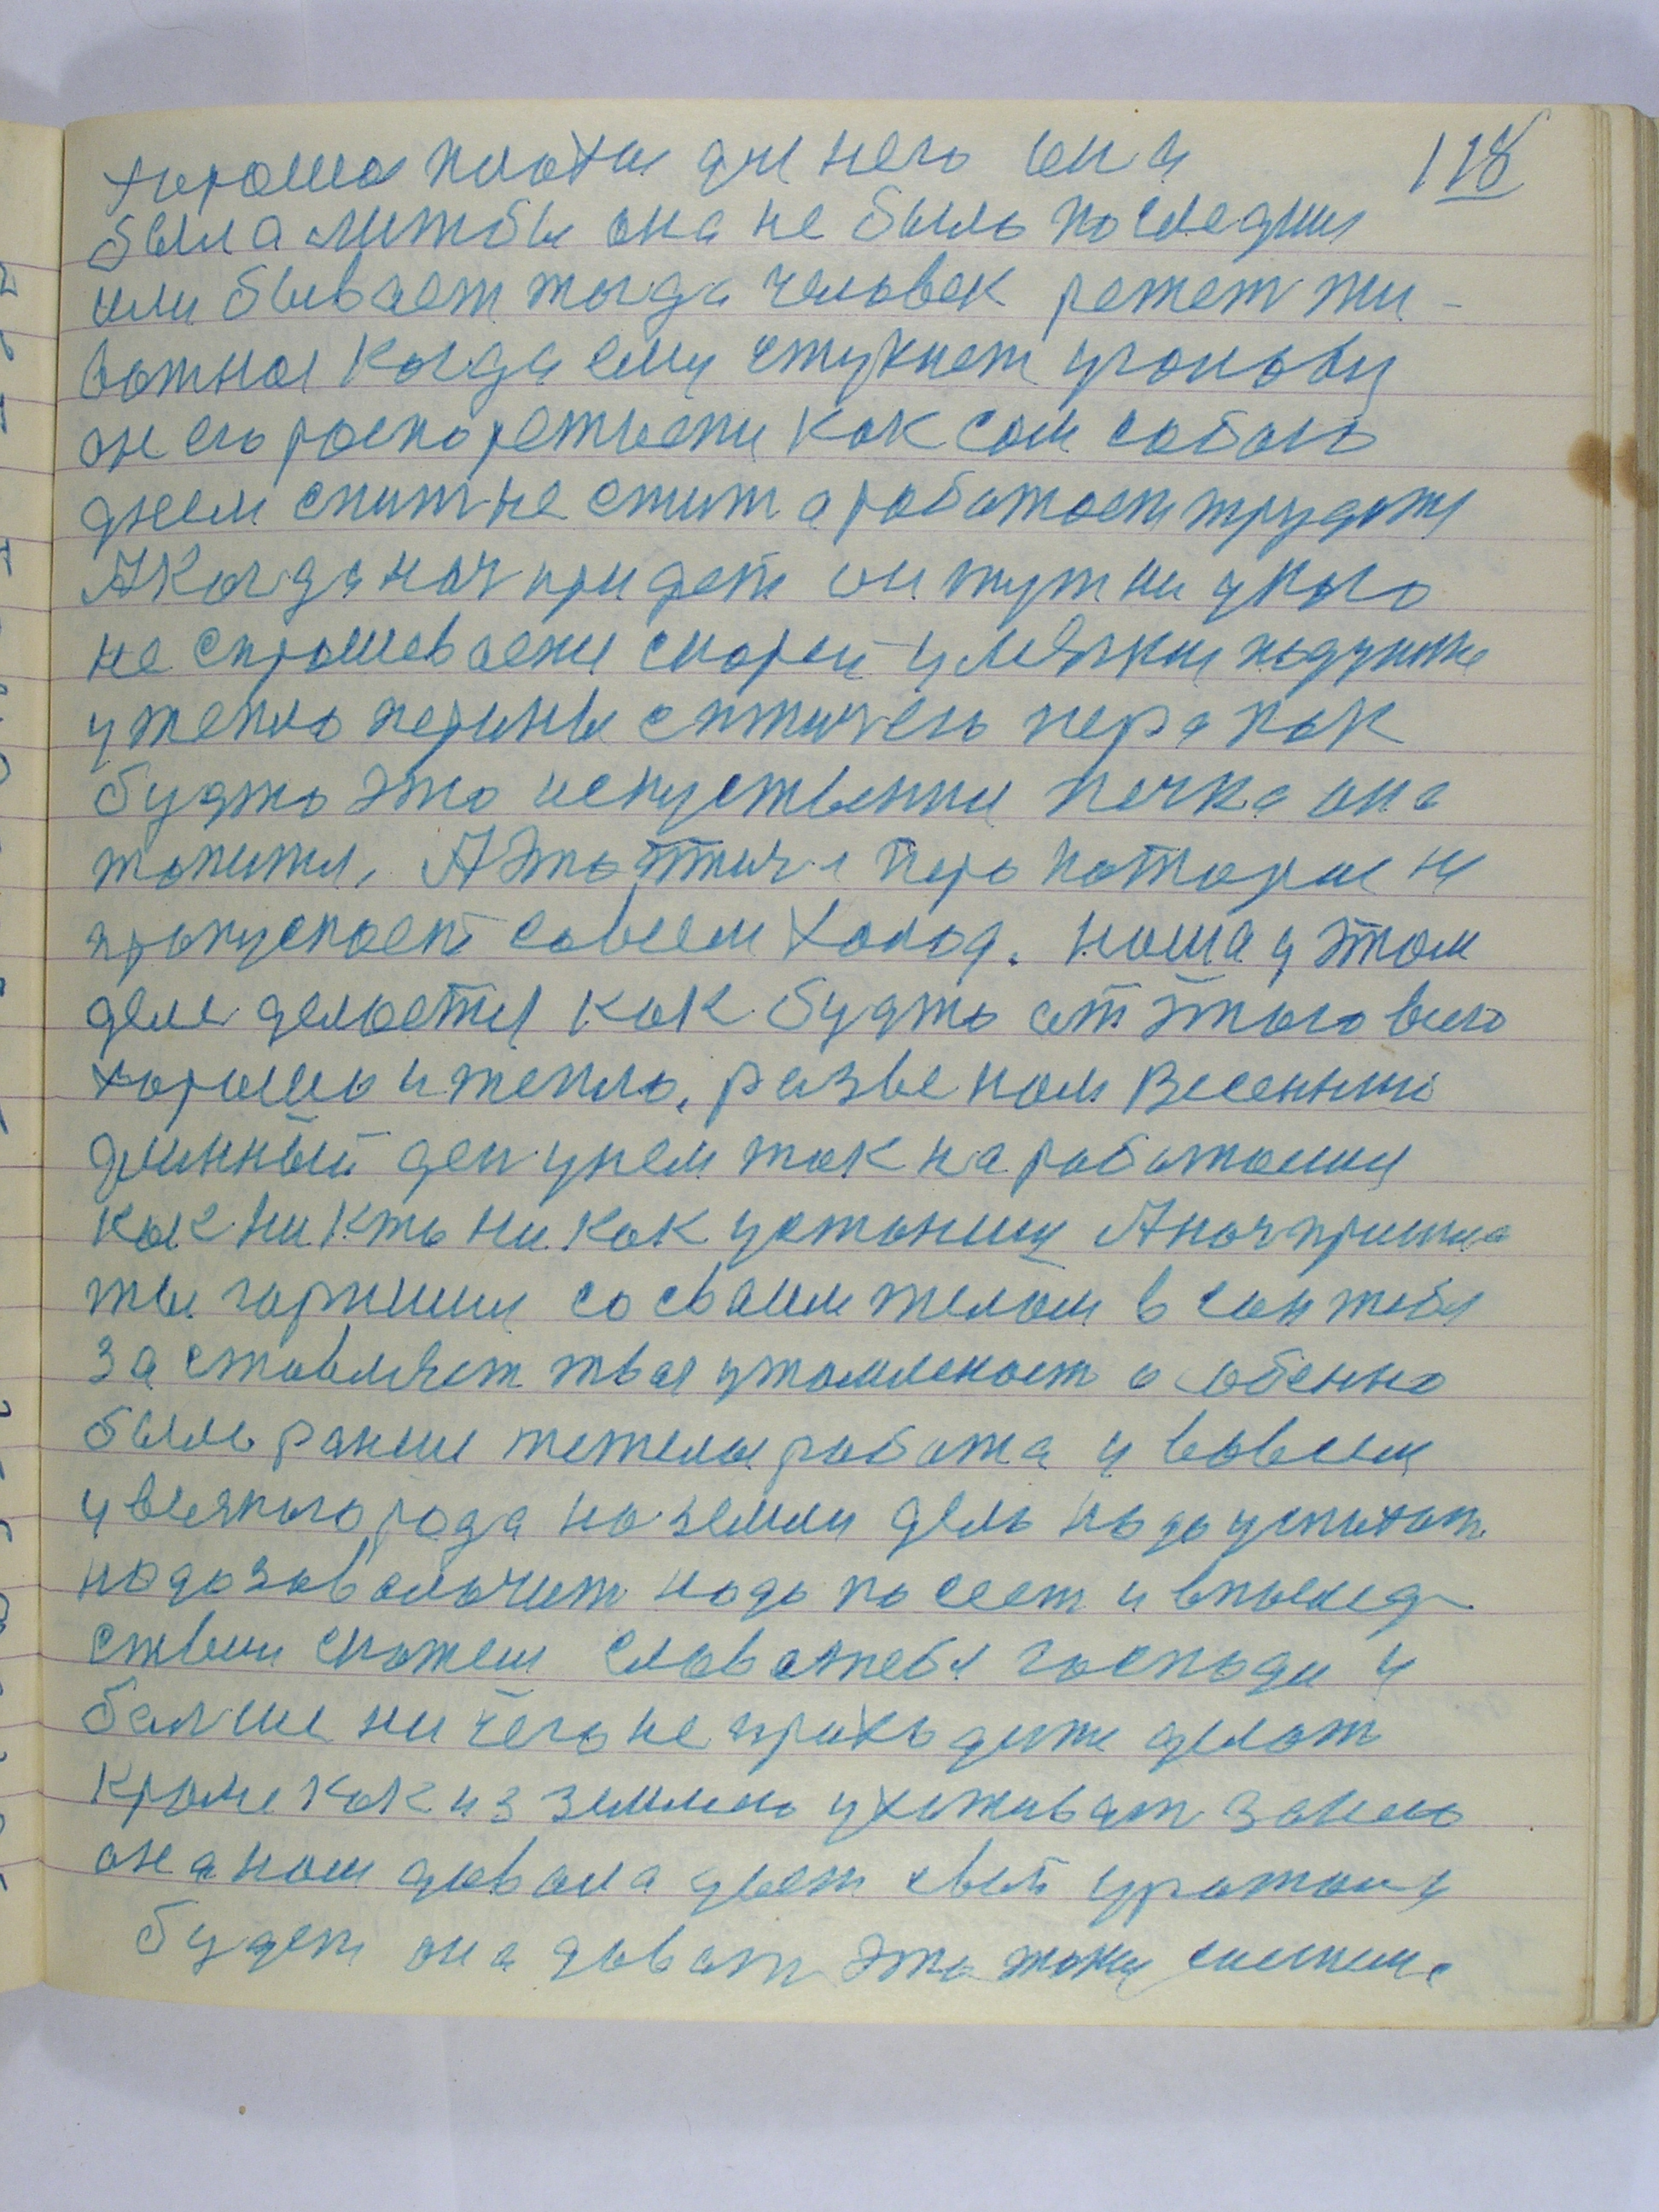 118
хороша плоха для него она
была литбы она не быль последния
или бывает тогда человек режет жи-
вотноя когда ему стукнет уголову
он его роспорежаети как сам собою
днем спит не спит а роботоет трудитя
А когда ноч придет он тут ни укого
не спрошеваети скорей умягкия подушки
утепло перины сптичею пера как
будто это искуственная печка она
топится, А это птичя перо которое не
пропускоет совсем холод. ноша у этом
деле делоется как будто от этого всего
хорошо и тепло, разве ном Весенний
длинный ден унем так нароботоиш
как ни кто ни как устониш А ноч пришла
ты горниш со своим телом в сон тебя
заставляет твоя утомленост особенно
была ранше тяжелоя робота и вовсем
и всякого рода но земли дело нодо успихат
нодо заволочит нодо посеет и впослед
ствии скажем слава тебя господи и
болше ни чего не приходитя делат
кромя как из землею ухаживат занею
она ном довала дает свой урожои и
будет она дават это токи